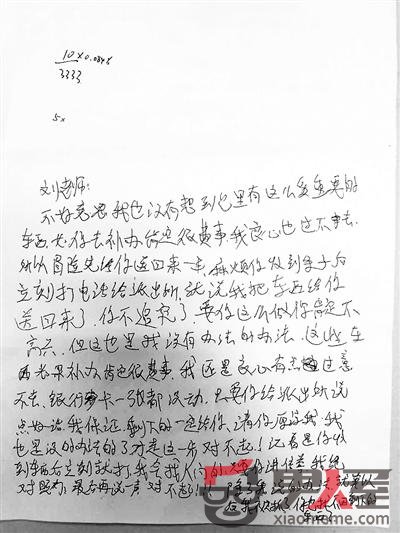 10×0.0848
3333
5×
刘老师:
不好意思我也没有想到包里有这么多重要的
东西 你去补办肯定很费事,我良心也过不去,
所以冒险先给你送回来一点,麻烦你收到东西后
立刻打电话给派出所,就说我把东西给你
送回来了,你不追究了,要你这么做你肯定不
高兴,但这也是我没有办法的办法,这些东
西如果补办肯定很费事,我还是良心有点过意
不去,银行卡一张都没动,只要你给派出所说
点好话,我保证剩下的一定给你,请你原谅我,我
也是没的办法的了才走这一步 对不起!
到东西后立刻就打
对 最后再说一声 对不起!!!
xiaoheime.com